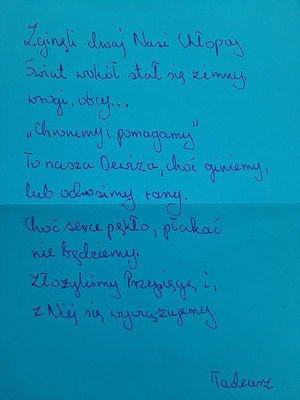 Zginęli dwaj Nasi Chłopcy.
Świat wokół stał się zimny,
wrogi, obcy...
„Chronimy i pomagamy"
To nasza Dewiza, choć giniemy,
lub odnosimy rany.
Choć serce pękło, płakać
nie będziemy.
Złożyliśmy Przysięgę i,
z Niej się wywiązujemy.
Tadeusz